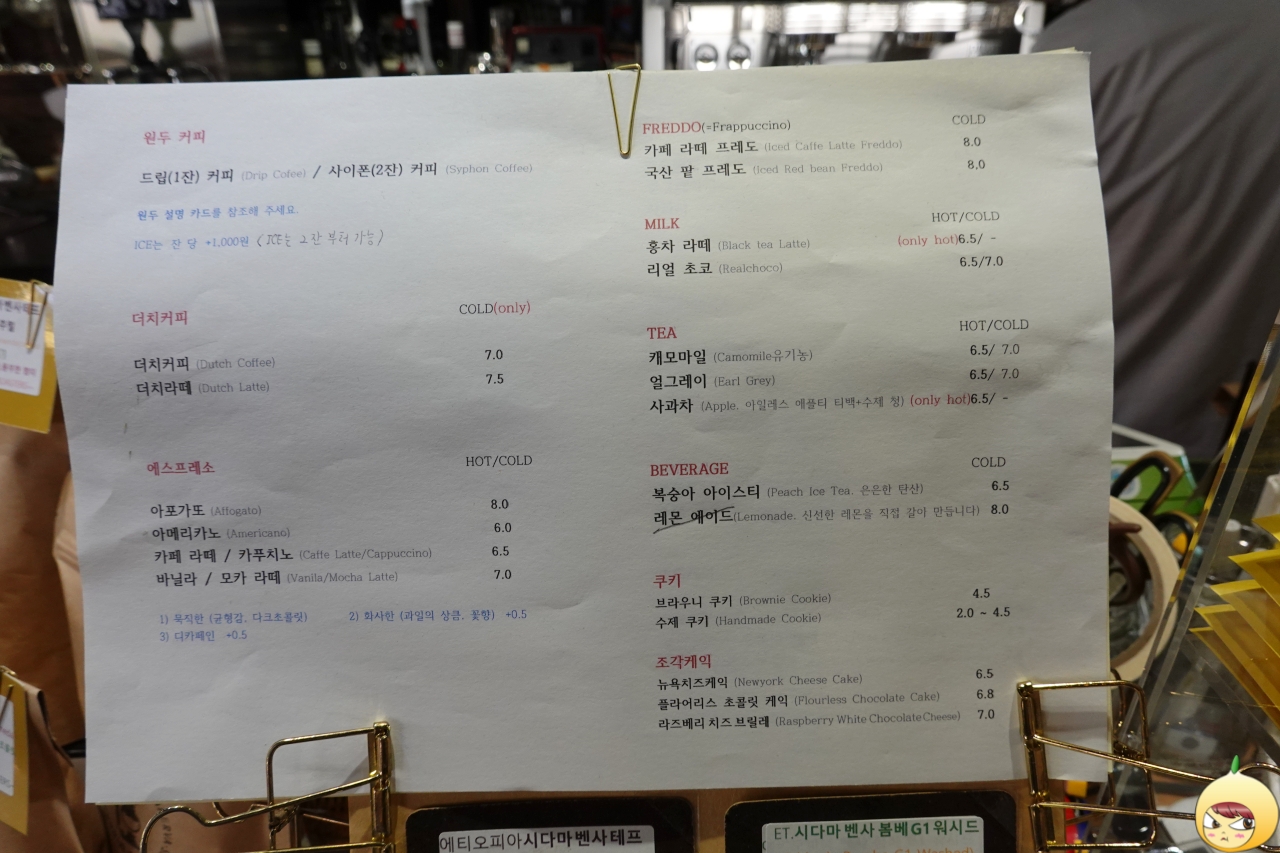 원두 커피
드립(1잔) 커피 (Drip Cofee) / 사이폰(2잔) 커피 (Syphon Coffee)
원두 설명 카드를 참조해 주세요.
ICE는 잔 당 +1,000원 (ICE는 2잔 부터 가능)
더치커피 COLD(only)
더치커피 (Dutch Coffee) 7.0
더치라떼 (Dutch Latte) 7.5
에스프레소 HOT/COLD
아포가또 (Affogato) 8.0
아메리카노 (Americano) 6.0
카페 라떼 / 카푸치노 (Caffe Latte/Cappuccino) 6.5
바닐라 / 모카 라떼 (Vanila/Mocha Latte) 7.0
1) 묵직한 (균형감, 다크초콜릿) 2) 화사한 (과일의 상큼, 꽃향) +0.5
3) 디카페인 +0.5
FREDDO(=Frappuccino) COLD
카페 라떼 프레도 (Iced Caffe Latte Freddo) 8.0
국산 팥 프레도 (Iced Red bean Freddo) 8.0
MILK HOT/COLD
홍차 라떼 (Black tea Latte) (only hot)6.5/ -
리얼 초코 (Realchoco) 6.5/7.0
TEA HOT/COLD
캐모마일 (Camomile유기농) 6.5/ 7.0
얼그레이 (Earl Grey) 6.5/ 7.0
사과차 (Apple, 아일레스 애플티 티백+수제 청) (only hot)6.5/ -
BEVERAGE COLD
복숭아 아이스티 (Peach Ice Tea, 은은한 탄산) 6.5
레몬 에이드(Lemonade, 신선한 레몬을 직접 갈아 만듭니다) 8.0
쿠키
브라우니 쿠키 (Brownie Cookie) 4.5
수제 쿠키 (Handmade Cookie) 2.0 ~ 4.5
조각케익
뉴욕치즈케익 (Newyork Cheese Cake) 6.5
플라어리스 초콜릿 케익 (Flourless Chocolate Cake) 6.8
라즈베리 치즈 브릴레 (Raspberry White Chocolate Cheese) 7.0
에티오피아 시다마 벤사 테프
ET.시다마 벤사 봄베 G1 워시드